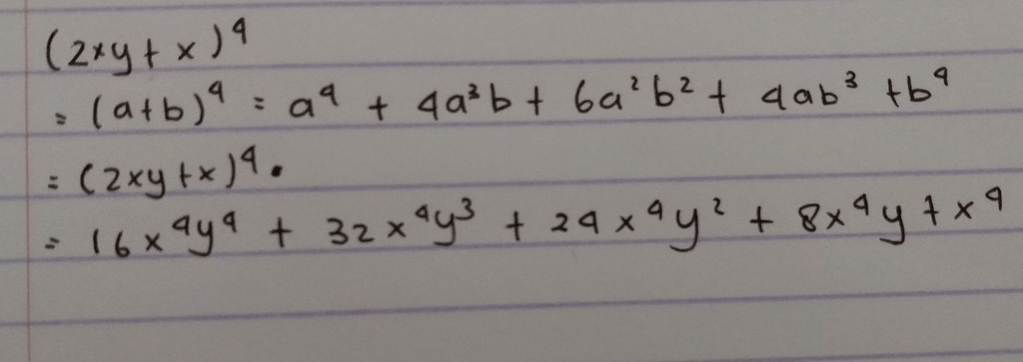 (2xy + x)⁴
= (a+b)⁴ = a⁴ + 4a³b + 6a²b² + 4ab³ + b⁴
= (2xy + x)⁴.
= 16x⁴y⁴ + 32x⁴y³ + 24x⁴y² + 8x⁴y + x⁴